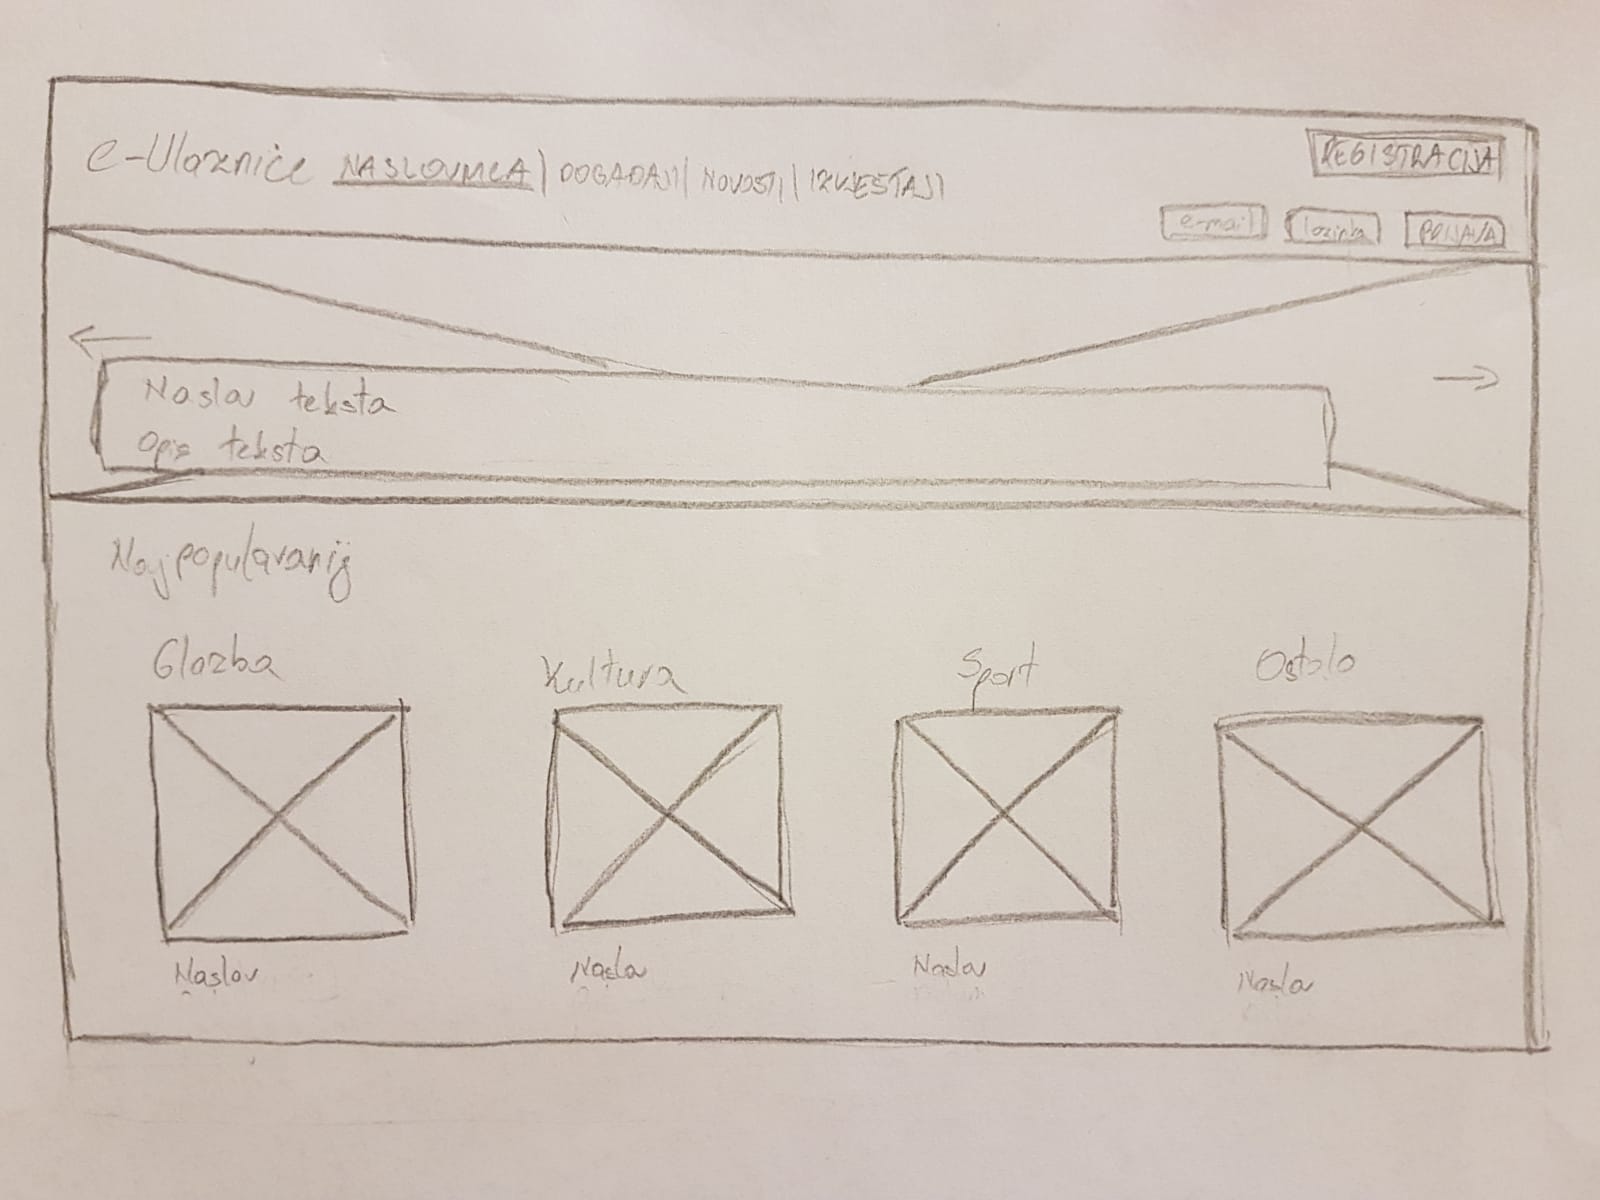 e-Ulaznice NASLOVNICA | DOGAĐAJI | NOVOSTI | IZVJEŠTAJI
REGISTRACIJA
e-mail lozinka PRIJAVA
Naslov teksta
Opis teksta
Najpopularniji
Glazba Kultura Sport Ostalo
Naslov Naslov Naslov Naslov